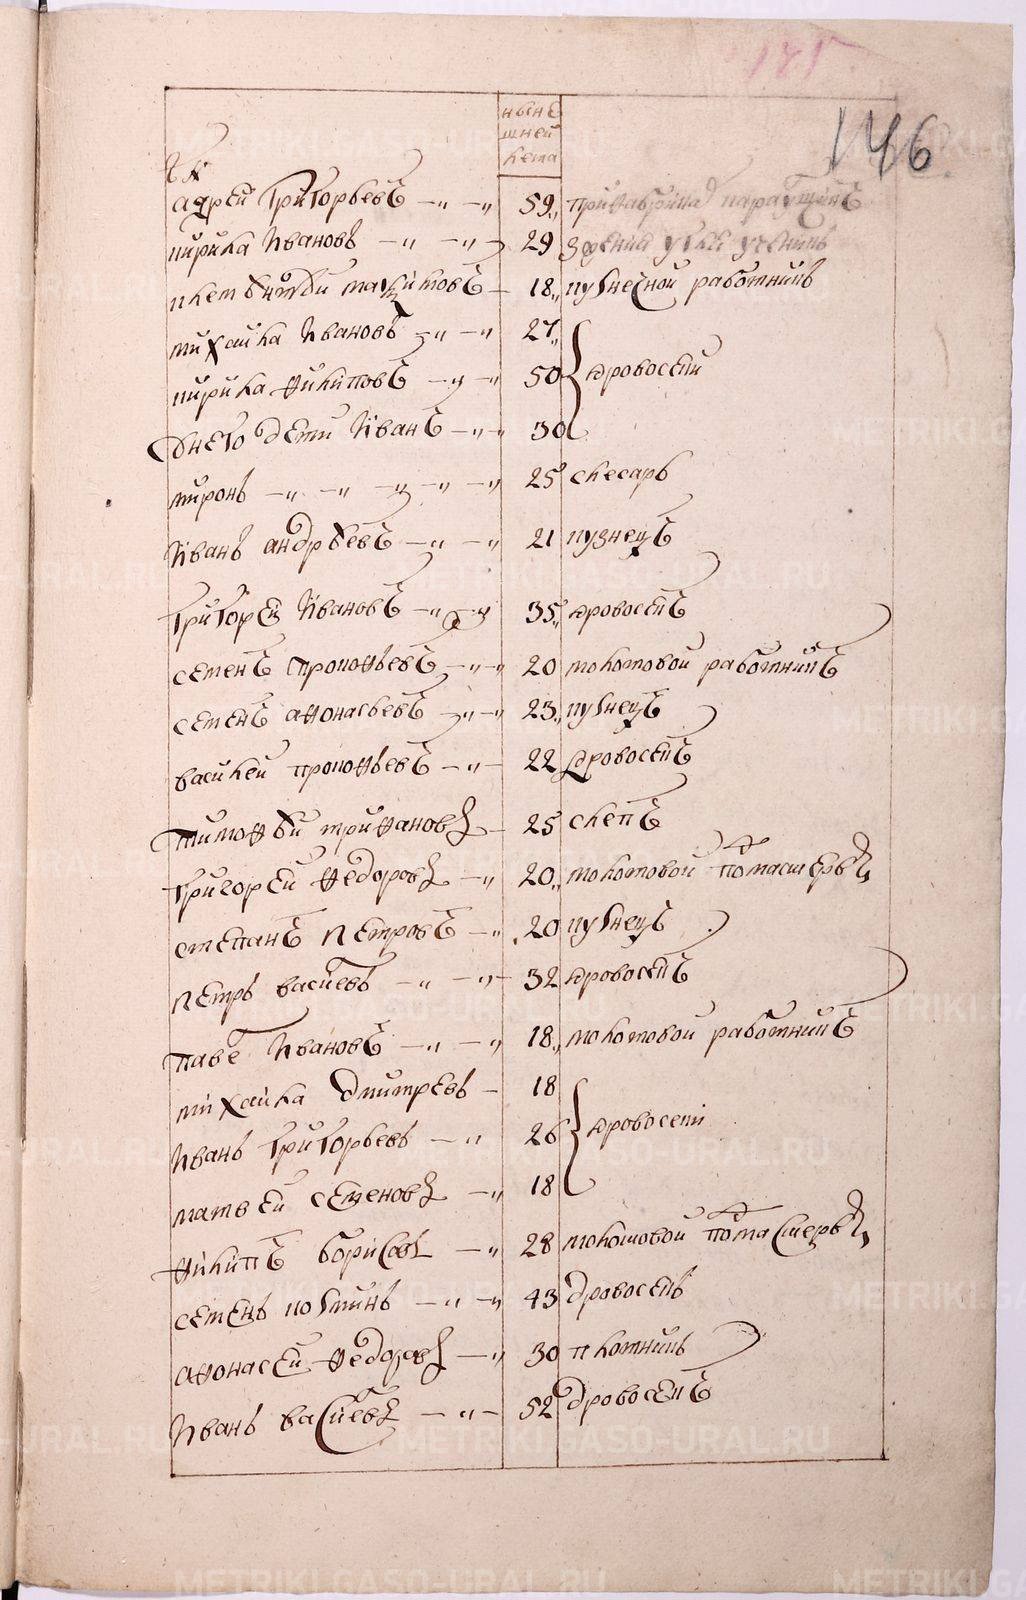 146
нынѣ
шней
лета
андрей григорьевъ 59
кирила ивановъ 29
18 кузнечной работникъ
михаила ивановъ 27
кирила никитовъ 50 дровосеки
у него дети иванъ 30
миронъ 25 слесарь
иванъ андрѣевъ 21 кузнецъ
григорей ивановъ 35 дровосекъ
семенъ прокофьевъ 20 молотовой работникъ
семенъ афонасьевъ 23 кузнецъ
василей прокофьевъ 22 дровосекъ
тимофѣй трифановъ 25 слепъ
григорей федоровъ 20 молотовой подмастерья
степанъ петровъ 20 кузнецъ
петръ васильевъ 32 дровосекъ
павелъ ивановъ 18 молотовой работникъ
михаила дмитревъ 18
иванъ григорьевъ 26 дровосеки
матвей семеновъ 18
филипъ борисовъ 28 молотовой подмастерья
семенъ козминъ 43 дровосекъ
афонасей федоровъ 30 плотникъ
иванъ васильевъ 52 дровосекъ